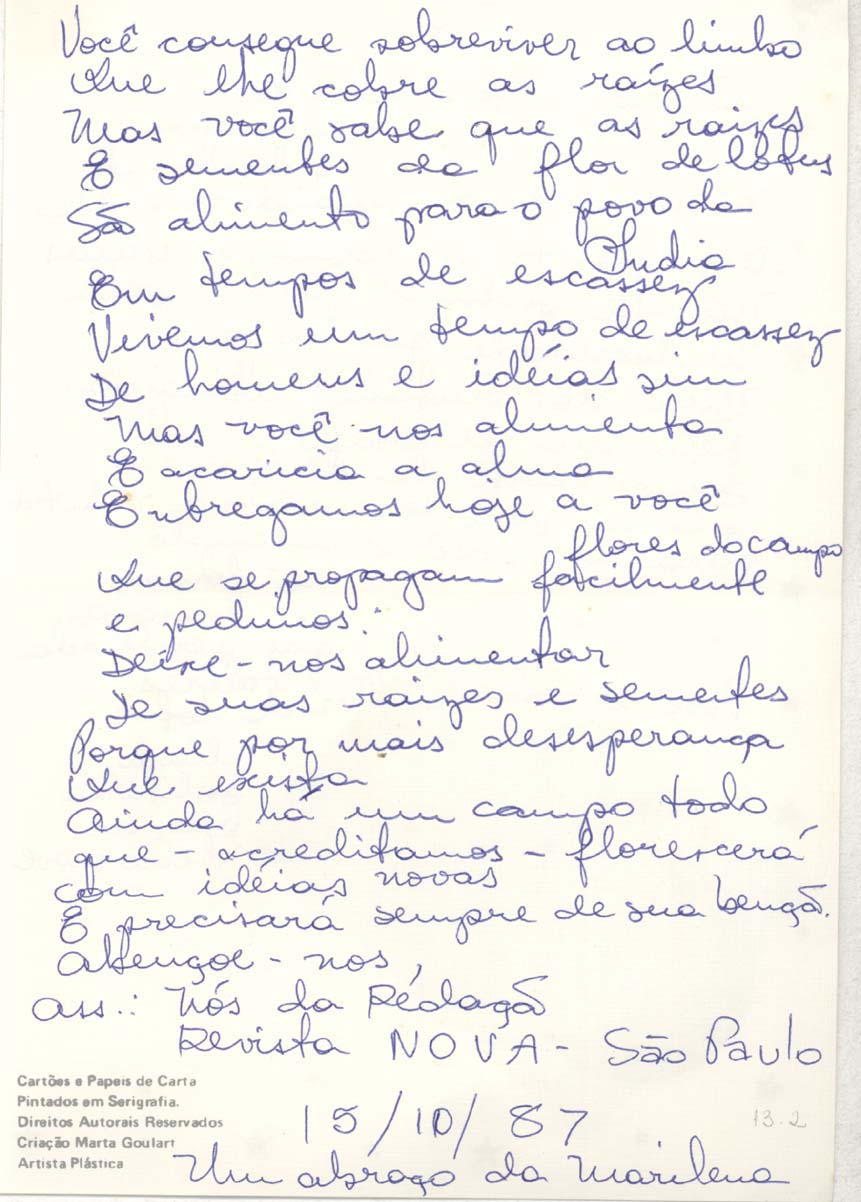 Você consegue sobreviver ao limbo
Que lhe cobre as raízes
Mas você sabe que as raizes
E sementes da flor de lótus
São alimento para o povo da
Índia
Em tempos de escassez
Vivemos um tempo de escassez
De homens e idéias sim
Mas você nos alimenta
E acaricia a alma
Entregamos hoje a você
flores do campo
Que se propagam facilmente
e pedimos:
Deixe-nos alimentar
De suas raizes e sementes
Porque por mais desesperança
Que exista
Ainda há um campo todo
que - acreditamos - florescerá
com idéias novas
E precisará sempre de sua bençã.
Abençoe-nos,
ass.: Nós da Redaçã
Revista NOVA - São Paulo
15/10/87
Um abraço da Marilena
Cartões e Papeis de Carta
Pintados em Serigrafia.
Direitos Autorais Reservados
Criação Marta Goulart
Artista Plástica
13.2